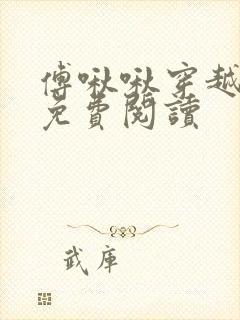 傅啾啾穿越
免費閱讀
武庫